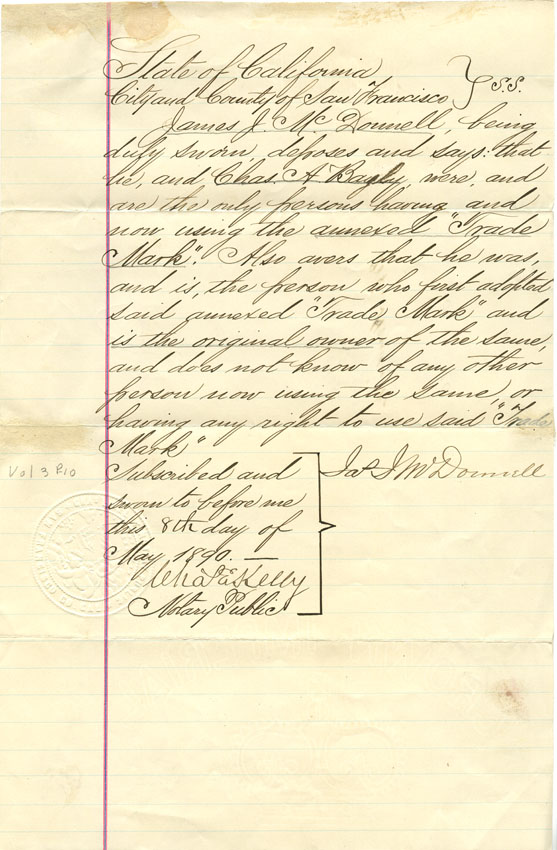 State of California
City and County of San Francisco } S.S.
James J. McDonnell, being
duly sworn, deposes and says: that
he, and Chas. A Bagly, were, and
are the only persons having and
now using the annexed "Trade
Mark". Also avers that he was,
and is, the person who first adopted
said annexed "Trade Mark" and
is the original owner of the same,
and does not know of any other
person now using the same, or
having any right to use said "Trade
Mark"
Jas J McDonnell
Vol 3 R10
Subscribed and
sworn to before me
this 8th day of
May, 1890. —
Chas Kelly
Notary Public